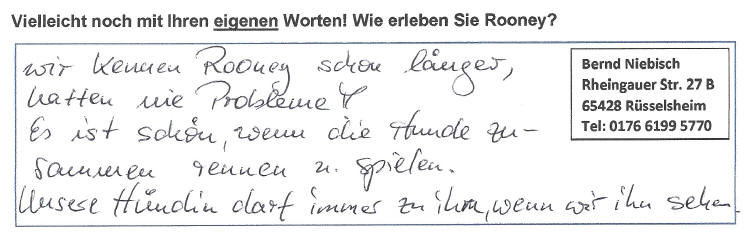 Vielleicht noch mit Ihren eigenen Worten! Wie erleben Sie Rooney?
wir kennen Rooney schon länger,
hatten nie Probleme!
Es ist schön, wenn die Hunde zu-
sammen rennen u. spielen.
Unsere Hündin darf immer zu ihm, wenn wir ihn sehen.
Bernd Niebisch
Rheingauer Str. 27 B
65428 Rüsselsheim
Tel: 0176 6199 5770